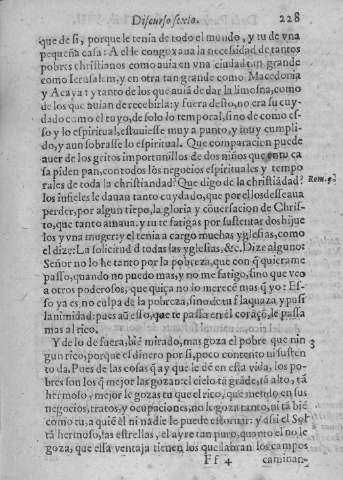 Discurso sexto. 228
que de si, porque le tenia de todo el mundo, y tu de vna
pequeña casa: A el le congoxaua la necessidad de tantos
pobres christianos como auia en vna ciudad tan grande
como Ierusalem, y en otra tan grande como Macedonia
y Acaya: y tanto de los que auiã de dar la limosna, como
de los que auian de recebirla: y fuera desto, no era su cuy-
dado como el tuyo, de solo lo temporal, sino de como es-
so y lo espiritual, estuuiesse muy a punto, y muy cumpli-
do, y aun sobrasse lo espiritual. Que comparacion puede
auer de los gritos importunillos de dos niños que en tu ca
sa piden pan, con todos los negocios espirituales y tempo
rales de toda la christiandad? Que digo de la christiãdad?
Rom. 9.
los infieles le dauan tanto cuydado, que por ellos desseaua
perder, por algun tiẽpo, la gloria y cõuersacion de Chris-
to, que tanto amaua: y tu te fatigas por sustentar dos hijue
los y vna muger: y el tenia a cargo muchas yglesias, como
el dize: La solicitud d todas las yglesias, &c. Dize alguno:
Señor no lo he tanto por la pobreza, que con q̃ quierame
passo, quando no puedo mas, y no me fatigo, sino que veo
a otros poderosos, que quiça no lo merecẽ mas q̃ yo: Es-
so ya es no culpa de la pobreza, sino de tu flaquaza y pusi
lanimidad: pues aũ esso, que te passa en el coraçõ, le passa
mas al rico.
Y de lo de fuera, biẽ mirado, mas goza el pobre que nin
3
gun rico, porque el dinero por si, poco contento ni susten
to da. Pues de las cosas q̃ ay que le dẽ en esta vida, los po-
bres son los q̃ mejor las gozan: el cielo tã grãde, tã alto, tã
hermoso, mejor le gozas tu que el rico, que metido en sus
negocios, tratos, y ocupaciones, no le goza tanto, ni tã biẽ
como tu, a quiẽ el ni nadie le puede estoruar: y assi el Sol
tã hermoso, las estrellas, el ayre tan puro, quanto el no le
goza, que essa ventaja tienen los que llaman los campos
Ff 4 caminan-